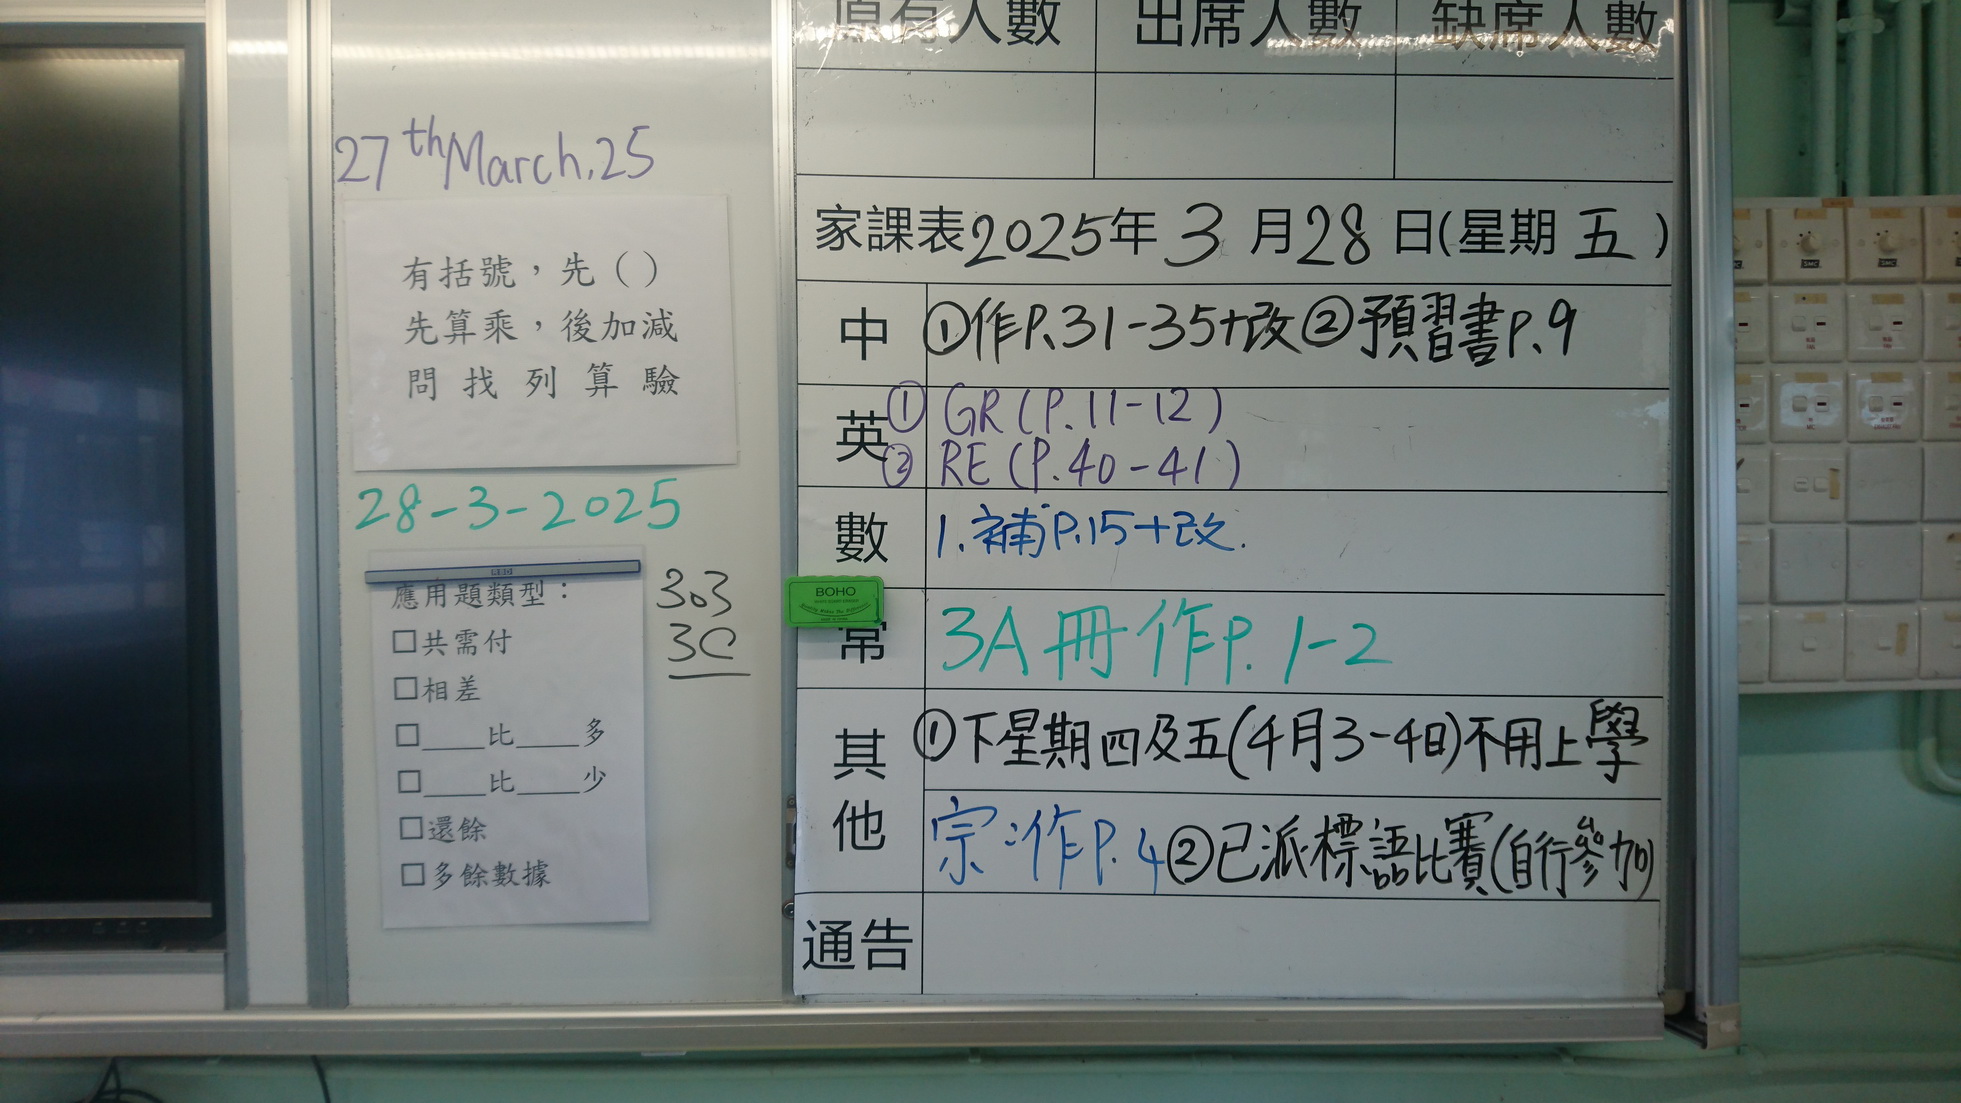 原有人數 出席人數 缺席人數
27th March, 25
有括號，先（）
先算乘，後加減
問找列算驗
28-3-2025
RBD
應用題類型：
□共需付
□相差
□____比____多
□____比____少
□還餘
□多餘數據
303
3C
家課表2025年3月28日(星期五)
中 ①作P.31-35+改②預習書P.9
英 ① GR (P.11-12)
② RE (P.40-41)
數 1.補P.15+改.
BOHO
常 3A冊作P.1-2
其他 ①下星期四及五(4月3-4日)不用上學
宗:作P.4②已派標語比賽(自行參加)
通告